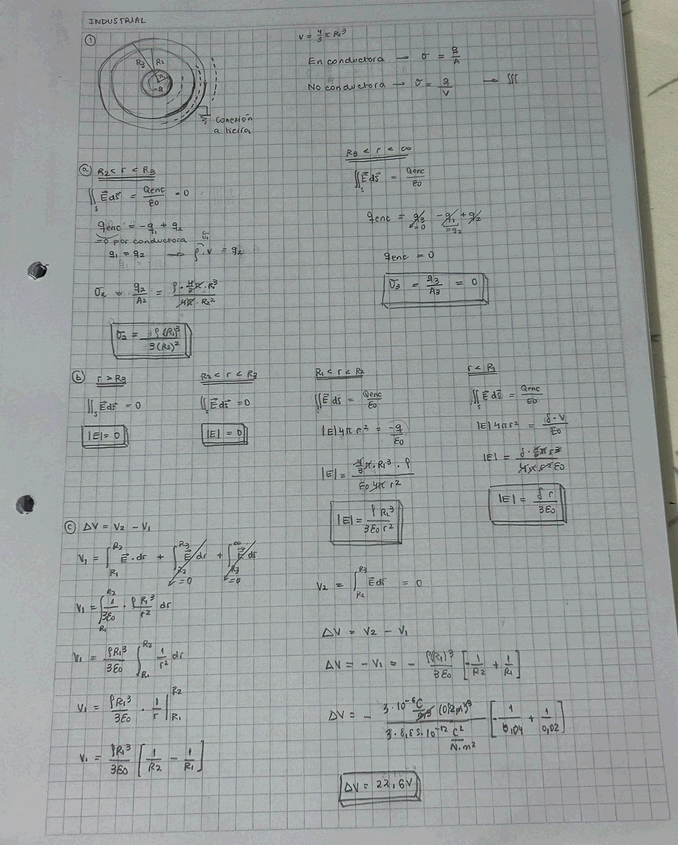 INDUSTRIAL
①
R3 R2
conexión
a tierra
V = 4/3 π R1³
En conductora → σ = q/A
No conductora → σ = q/V → ∭
ⓐ R2 < r < R3
∬s E⃗ ds⃗ = Qenc/ε0 = 0
qenc = -q1 + q2
=0 por conductora
q1 = q2 → ρ · V = q2
σ2 = q2/A2 = ρ · 4/3 π · R1³ / 4π · R2²
σ2 = ρ(R1)³ / 3(R2)²
R3 < r < ∞
∬s E⃗ ds⃗ = Qenc/ε0
qenc = q3 - q1 + q2
=0 =q2
qenc = 0
σ3 = q3/A3 = 0
ⓑ r > R3
∬s E⃗ ds⃗ = 0
|E| = 0
R2 < r < R3
∬s E⃗ ds⃗ = 0
|E| = 0
R1 < r < R2
∬s E⃗ ds⃗ = Qenc/ε0
|E| 4π r² = -q/ε0
|E| = 4/3 π · R1³ · ρ / ε0 4π r²
|E| = ρ R1³ / 3ε0 r²
r < R1
∬s E⃗ ds⃗ = Qenc/ε0
|E| 4π r² = ρ · V/ε0
|E| = ρ · 4/3 π r³ / 4π r² ε0
|E| = ρ r / 3ε0
ⓒ ΔV = V2 - V1
V1 = ∫R1^R2 E⃗ · dr + ∫R2^R3 E⃗ dr + ∫R3^∞ E⃗ dr
=0 =0
V1 = ∫R1^R2 1/3ε0 · ρ R1³/r² dr
V1 = ρR1³/3ε0 ∫R1^R2 1/r² dr
V1 = ρR1³/3ε0 · 1/r |R1^R2
V1 = ρR1³/3ε0 [1/R2 - 1/R1]
V2 = ∫R2^R3 E⃗ dr = 0
ΔV = V2 - V1
ΔV = -V1 = - ρ(R1)³/3ε0 [-1/R2 + 1/R1]
ΔV = - 3 · 10⁻⁶ C/m³ (0,2 m)³ / 3 · 8,85 · 10⁻¹² C²/N·m² [-1/0,04 + 1/0,02]
ΔV = 22,6V